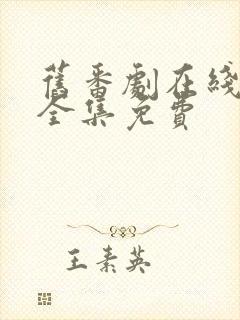 旧番劇在綫
全集免費
王素英